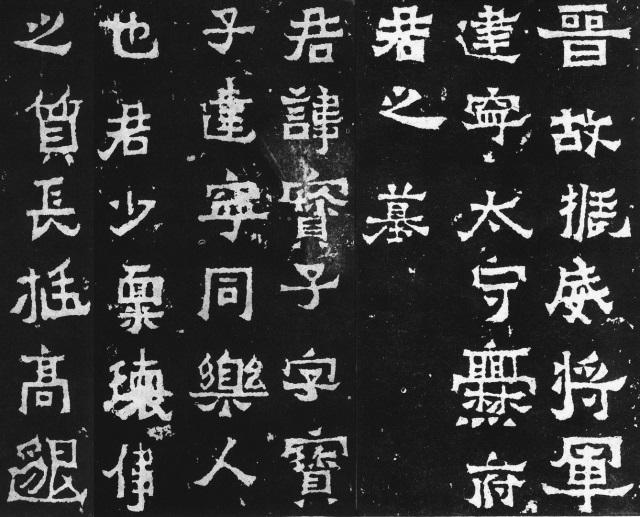 晉故振威將軍
建寧太守爨府
君之墓
君諱寶子字寶
子建寧同樂人
也君少稟瓌偉
之質長挺高邈